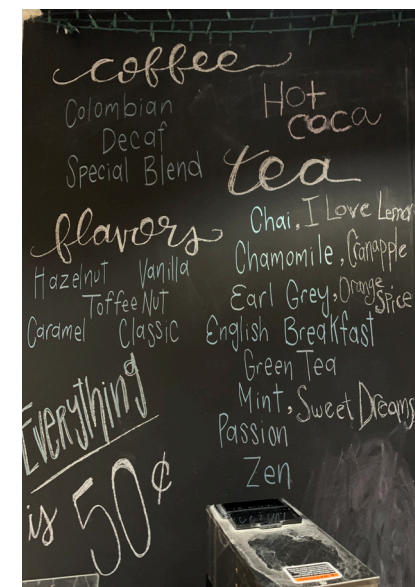 coffee
Colombian
Decaf
Special Blend
flavors
Hazelnut Vanilla
Toffee Nut
Caramel Classic
Everything
is 50¢
Hot
coca
tea
Chai, I Love Lemon
Chamomile, Cranapple
Earl Grey, Orange Spice
English Breakfast
Green Tea
Mint, Sweet Dreams
Passion
Zen